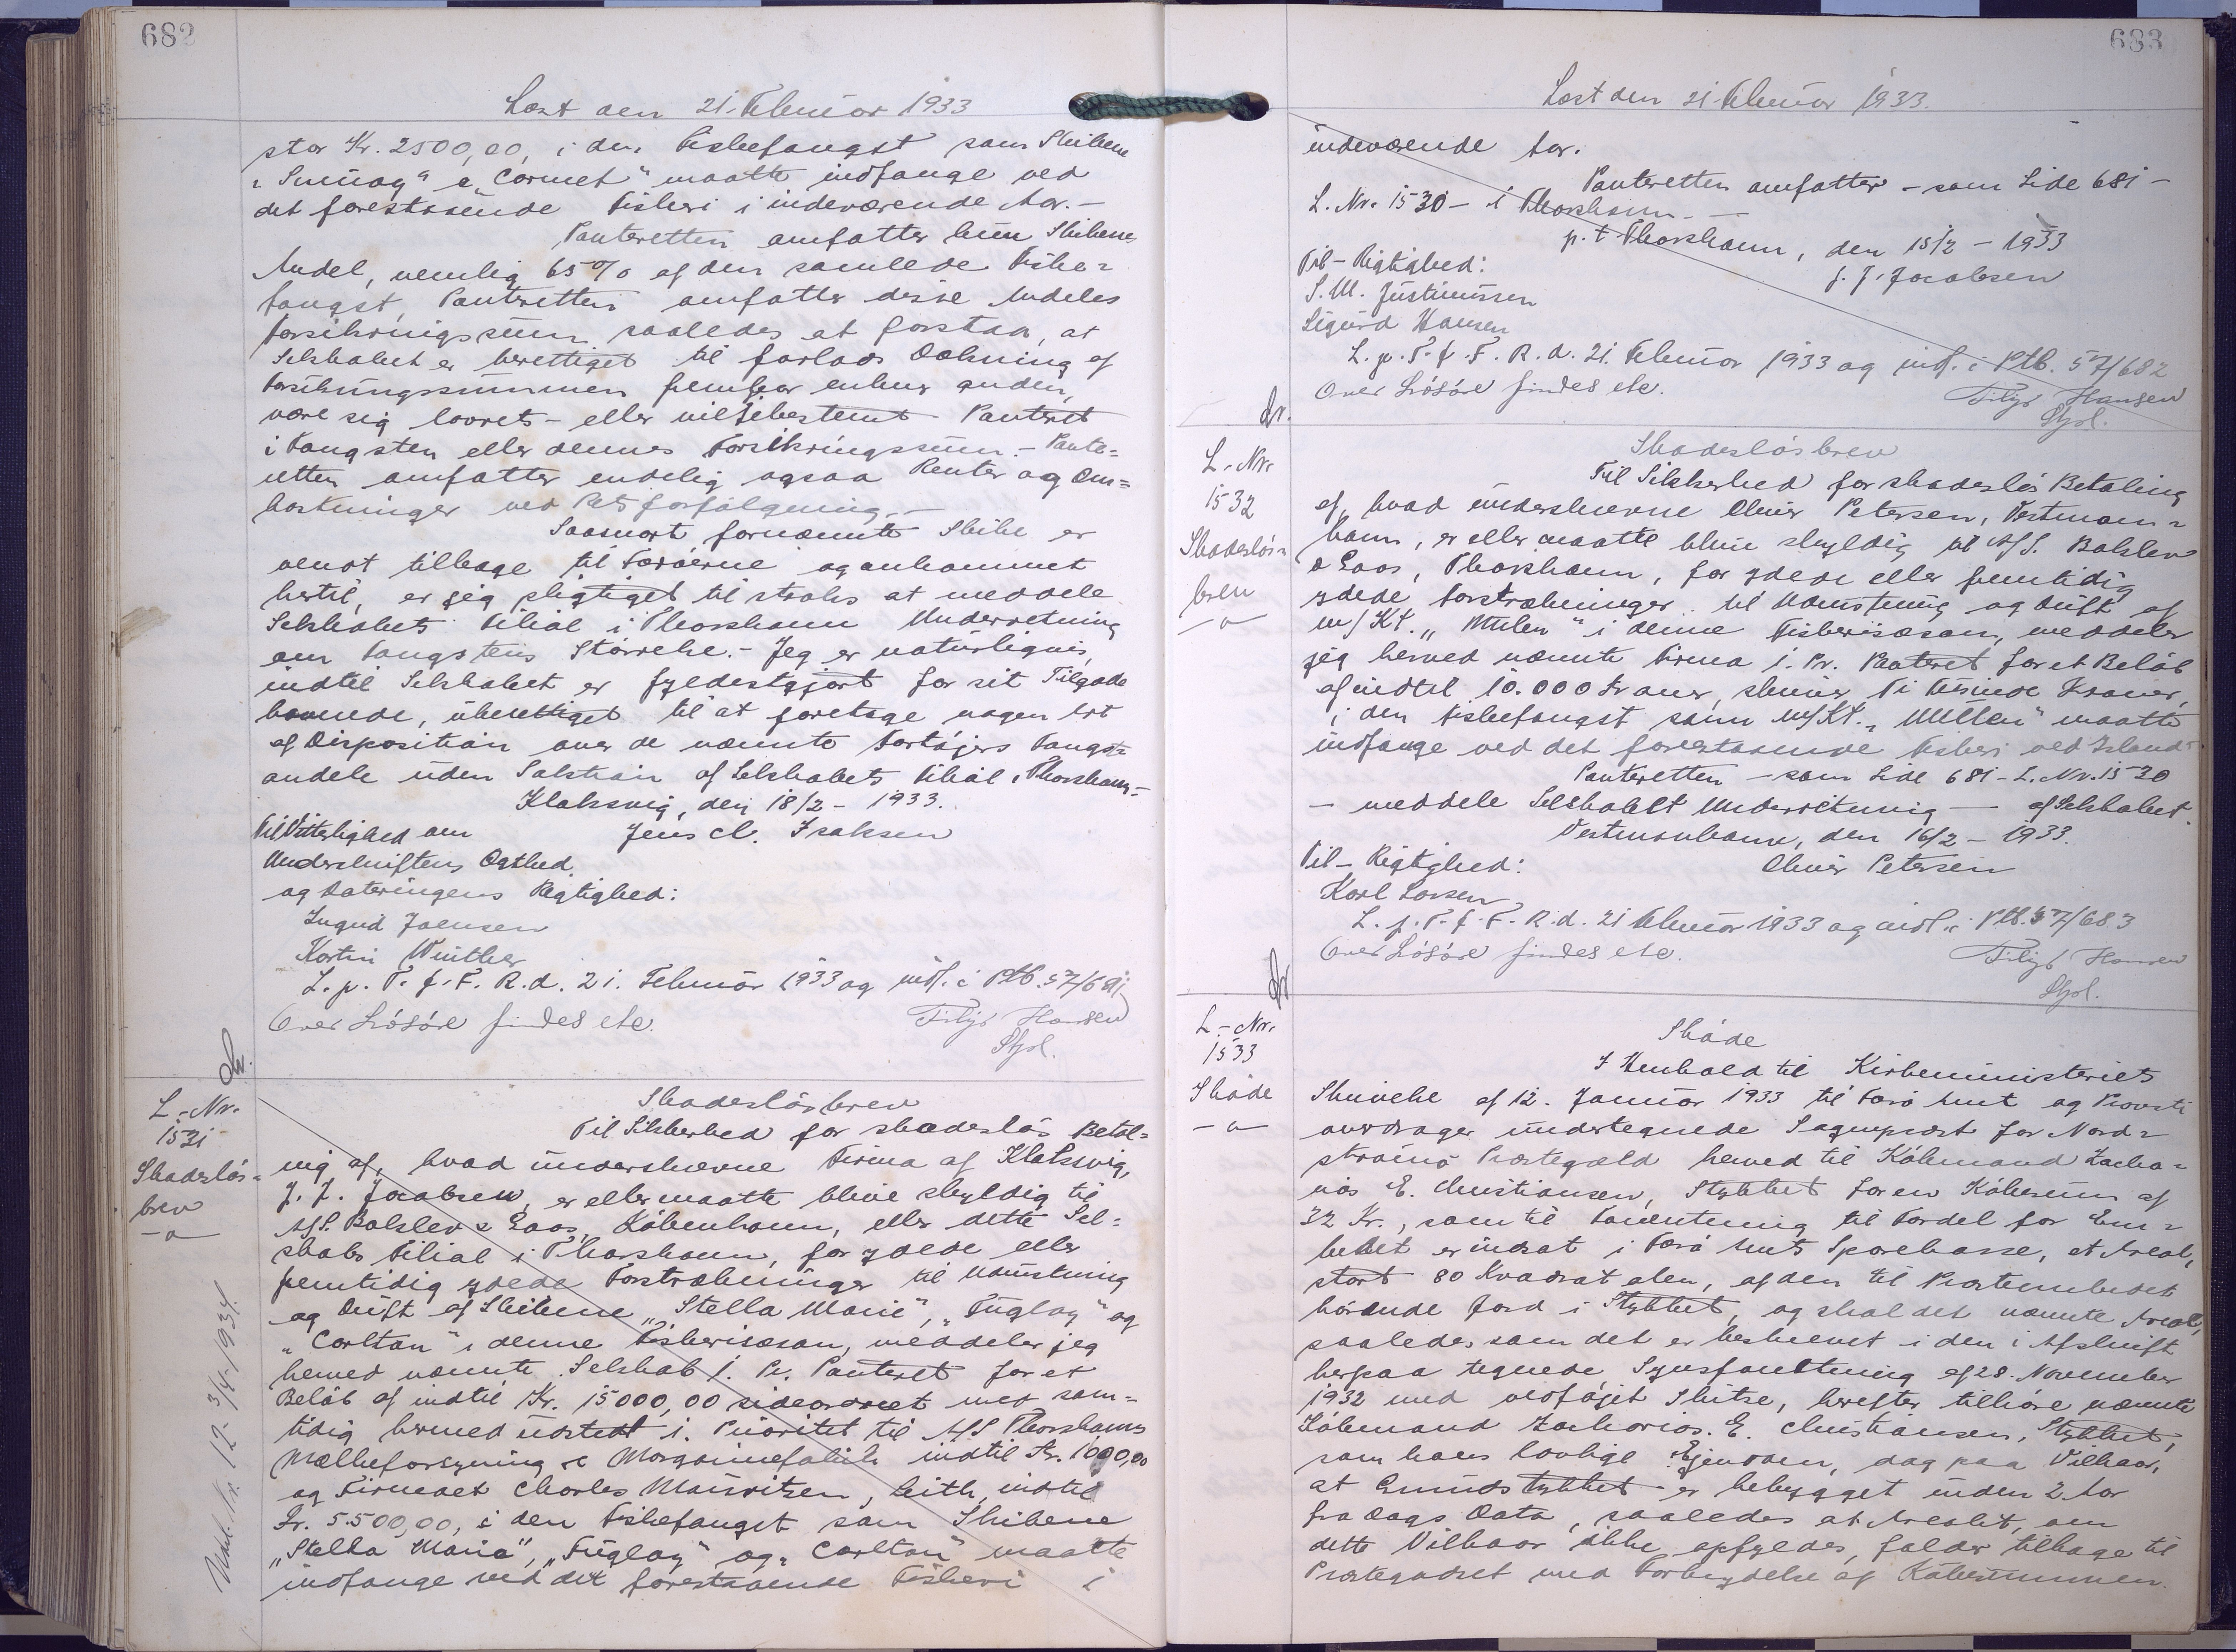 682
Læst den 21. Februar 1933
stor Kr. 2500,00, i den Fiskefangst som Skibene
"Suduroy" & "Cormet" maatte indfange ved
det forestaaende Fiskeri i indeværende Aar. -
Panteretten omfatter kun Skibenes
Andel, nemlig 65 % af den samlede Fiske=
fangst, Panteretten omfatter disse Andeles
Forsikringssum saaledes at forstaa, at
Selskabet er berettiget til forlods Dækning af
Forsikringssummen fremfor enhver anden,
være sig lovret- eller viljebestemt Panteret
i Fangsten eller dennes Forsikringssum. - Pante=
retten omfatter endelig ogsaa Renter og Om=
kostninger ved Retsforfølgning. -
Saasnart fornævnte Skibe er
vendt tilbage til Færøerne og ankommet
hertil, er jeg pligtiget til straks at meddele
Selskabets Filial i Thorshavn Underretning
om Fangstens Størrelse. - Jeg er naturligvis,
indtil Selskabet er fyldestgjort for sit Tilgode
havende, uberettiget til at foretage nogen Art
af Disposition over de nævnte Fartøjers Fangst=
andele uden Samtykke af Selskabets Filial i Thorshavn. -
Klaksvig, den 18/2 - 1933.
Til Vitterlighed om Jens Cl. Isaksen
Underskriftens Ægthed
og Dateringens Rigtighed:
Ingrid Joensen
Kortin Winther
L. p. T. f. F. R. d. 21. Februar 1933 og indf. i Ptb. 57/681
Over Løsøre findes etc. Filip Hansen
Stfol.
L.-Nr.
1531
Skadesløs=
brev
-a-
Skadesløsbrev
Til Sikkerhed for skadesløs Betal=
ing af, hvad underskrevne Firma af Klaksvig,
J. F. Jacobsen, er eller maatte blive skyldig til
A/S. Balslev & Laas, København, eller dette Sel=
skabs Filial i Thorshavn, for ydede eller
fremtidig ydede Forstrækninger til Udrustning
og Drift af Skibene "Stella Maria", "Fugloy" og
"Carlton" i denne Fiskerisæson, meddeler jeg
herved nævnte Selskab 1. Pr. Panteret for et
Beløb af indtil Kr. 15000,00 sideordnet med sam=
tidig hermed udstedt 1. Prioritet til A/S Thorshavns
Mælkeforsyning & Margarinefabrik indtil Kr. 1000,00
og Firmaet Charles Mauritzen, Leith, indtil
Kr. 5.500,00, i den Fiskefangst som Skibene
"Stella Maria", "Fugloy" og "Carlton" maatte
indfange ved det forestaaende Fiskeri i
683
Læst den 21. Februar 1933.
indeværende Aar.
Panteretten omfatter - som Side 681 -
L. Nr. 1530 - i Thorshavn. -
p. t. Thorshavn, den 15/2 - 1933
Til - Rigtighed: J. F. Jacobsen
S. M. Justinussen
Sigurd Hansen
L. p. T. f. F. R. d. 21. Februar 1933 og indf. i Ptb. 57/682
Over Løsøre findes etc. Filip Hansen
Stfol.
L.-Nr.
1532
Skadesløs=
brev
-a-
Skadesløsbrev
Til Sikkerhed for skadesløs Betaling
af, hvad underskrevne Oliver Petersen, Vestman=
havn, er eller maatte blive skyldig til A/S. Balslev
& Laas, Thorshavn, for ydede eller fremtidig
ydede Forstrækninger til Udrustning og Drift af
m/Kt. "Mulen" i denne Fiskerisæson, meddeler
jeg herved nævnte Firma 1. Pr. Panteret for et Beløb
af indtil 10.000 Kroner, skriver Ti Tusinde Kroner,
i den Fiskefangst som M/Kt. "Mulen" maatte
indfange ved det forestaaende Fiskeri ved Island.
Panteretten - som Side 681 - L. Nr. 1530
- meddele Selskabet Underretning - af Selskabet.
Vestmanhavn, den 16/2 - 1933.
Til - Rigtighed: Oliver Petersen
Karl Larsen
L. p. T. f. F. R. d. 21 Februar 1933 og indf. i Ptb. 57/683
Over Løsøre findes etc. Filip Hansen
Stfol.
L.-Nr.
1533
Skøde
-a-
Skøde
I Henhold til Kirkeministeriets
Skrivelse af 12. Januar 1933 til Færø Amt og Provsti
overdrager undertegnede Sognepræst for Nord=
strømø Præstegæld herved til Købmand Zacha=
rias E. Christiansen, Stykket for en Købesum af
32 Kr., som til Forrentning til Fordel for Em=
bedet er indsat i Færø Amts Sparekasse, et Areal,
stort 80 Kvadrat alen, af den til Præsteembedet
hørende Jord i Stykket, og skal det nævnte Areal,
saaledes som det er beskrevet i den i Afskrift
herpaa tegnede Synsforretning af 28. November
1932 med vedføjet Skitse, herefter tilhøre nævnte
Købmand Zacharias. E. Christiansen, Stykket,
som hans lovlige Ejendom, dog paa Vilkaar,
at Grundstykket er bebygget inden 2 Aar
fra Dags Dato, saaledes at Arealet, om
dette Vilkaar ikke opfyldes, falder tilbage til
Præstegodset med Fortabelse af Købesummen.